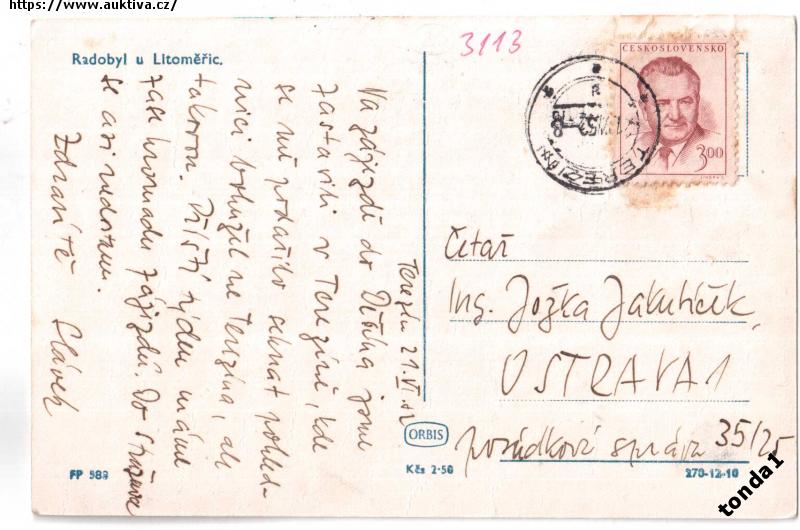 https://www.auktiva.cz/)
Radobyl u Litoměřic.
3113
ČESKOSLOVENSKO
3,00
TEREZÍN
Terezín 21.VI.52
Na zájezdě do Děčína jsme
zastavili v Terezíně, kde
se mi podařilo sehnat pohled-
nici bohužel ne Terezína, ale
takovou. Příští týden máme
zase hromadu zájezdů. Do Stražnice
se asi nedostanu.
Zdraví Tě Slávek
Četař
Ing. Jožka Jakubíček,
OSTRAVA 1
posádková správa 35/25
ORBIS
FP 588
Kčs 2·50
270-12-10
tonda1